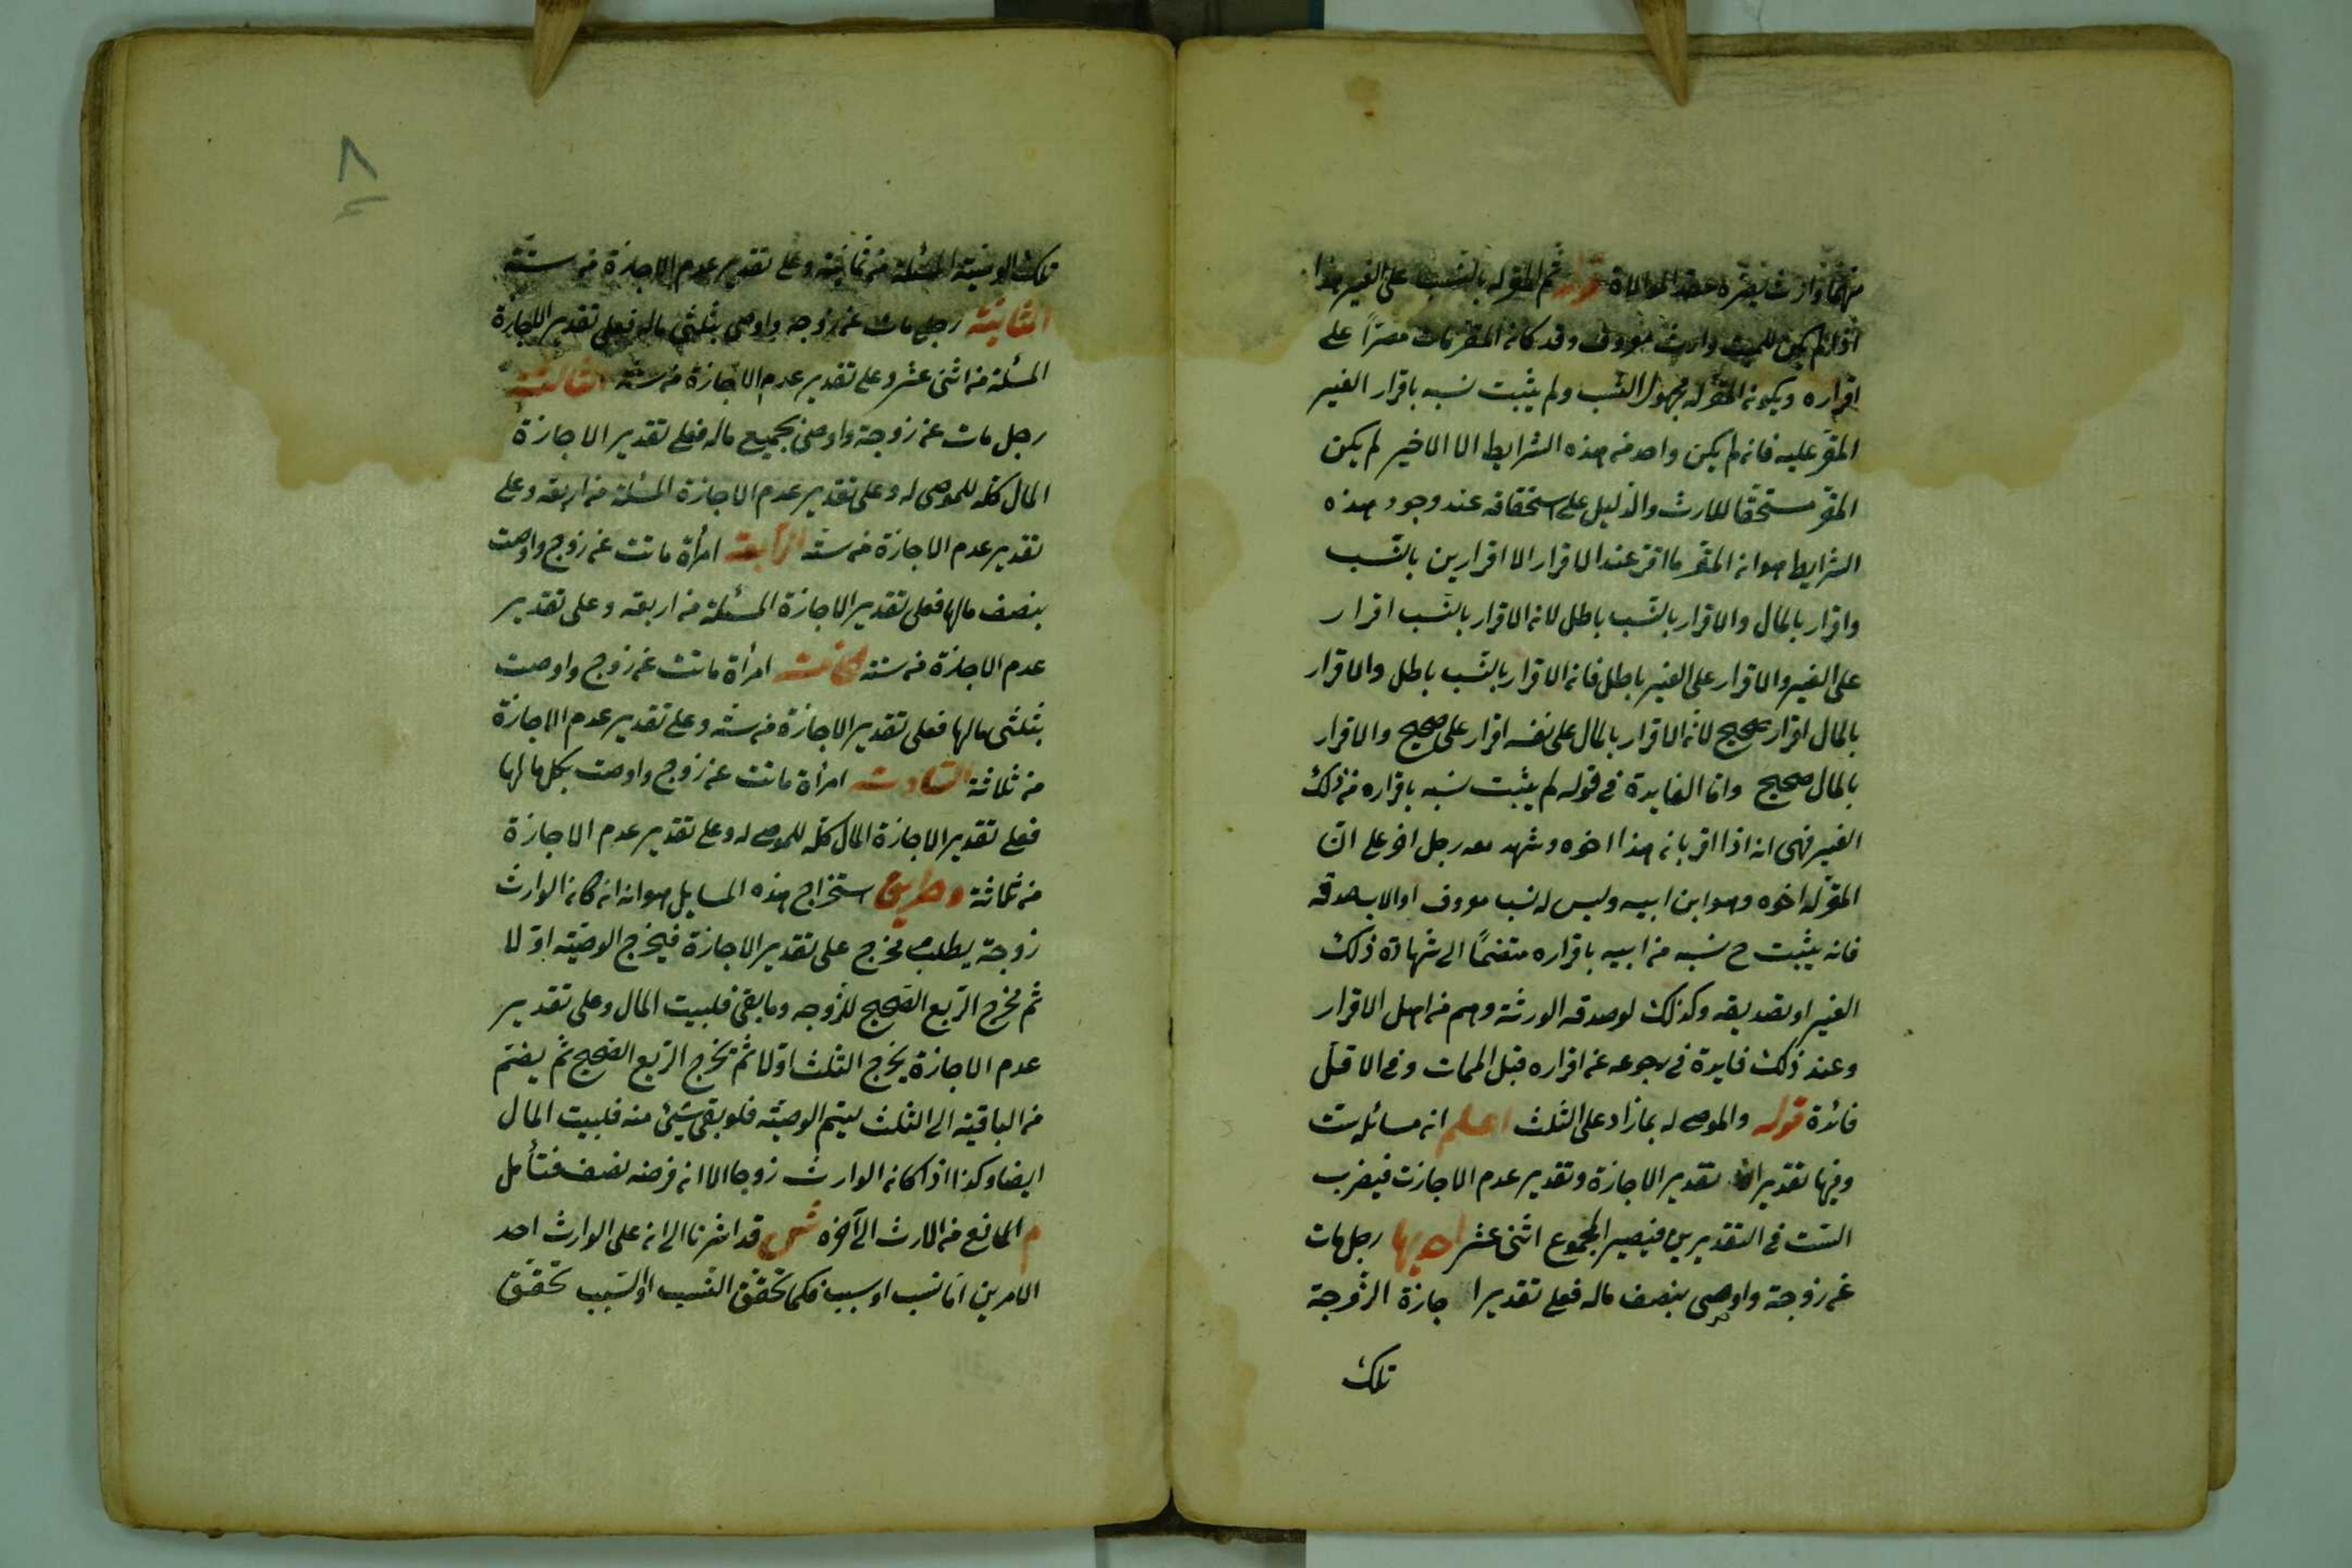 منهما وارث بغيره عقد الموالاة قوله ثم المقر له بالنسب على الغير هذا
اذا لم يكن للميت وارث معروف وقد كان المقر مات مصرّاً على
اقراره ويكون المقر له مجهول النسب ولم يثبت نسبه باقرار الغير
المقرّ عليه فان لم يكن واحد من هذه الشرايط الا الاخير لم يكن
المقر مستحقا للارث والدليل على استحقاقه عند وجود هذه
الشرايط هو ان المقر ما اقر عند الاقرار الا اقرارين بالنسب
واقرار بالمال والاقرار بالنسب باطل لان الاقرار بالنسب اقرار
على الغير والاقرار على الغير باطل فان الاقرار بالنسب باطل والاقرار
بالمال اقرار صحيح لان الاقرار بالمال على نفسه اقرار على صحيح والاقرار
بالمال صحيح واما الفايدة في قوله لم يثبت نسبه باقراره من ذلك
الغير فهى انه اذا اقر بان هذا اخوه وشهد معه رجل اخر على انّ
المقرّ له اخوه وهو ابن ابيه وليس له نسب معروف او الاب صدقه
فانه يثبت ح نسبه من ابيه باقراره متضمًا الى شهادة ذلك
الغير او تصديقه وكذلك لو صدقه الورثة وهم من اهل الاقرار
وعند ذلك فايدة في رجوعه عن اقراره قبل الممات وفى الاقلّ
فائدة قوله والموصى له بمازاد على الثلث اعلم ان مسائله ست
وفيها تقديران تقدير الاجازة وتقدير عدم الاجازت فيضرب
الست فى التقديرين فيصير المجموع اثنى عشر احديها رجل مات
عن زوجة واوصى بنصف ماله فعلى تقدير اجازة الزّوجة
تلك
٨
تلك الوصية المسئلة من ثمانية وعلى تقدير عدم الاجازة من ستة
الثانية رجل مات عن زوجه واوصى بثلثى ماله فعلى تقدير الاجازة
المسئلة من اثنى عشر وعلى تقدير عدم الاجازة من ستة الثالثة
رجل مات عن زوجة واوصى بجميع ماله فعلى تقدير الاجازة
المال كله للموصى له وعلى تقدير عدم الاجازة المسئلة من اربعة وعلى
تقدير عدم الاجازة من ستة الرابعة امرأة ماتت عن زوج واوصت
بنصف مالها فعلى تقدير الاجازة المسئلة من اربعة وعلى تقدير
عدم الاجازة من ستة الخامسة امرأة ماتت عن زوج واوصت
بثلثى مالها فعلى تقدير الاجازة من ستة وعلى تقدير عدم الاجازة
من ثلاثة السّادسة امرأة ماتت عن زوج واوصت بكل مالها
فعلى تقدير الاجازة المال كله للموصى له وعلى تقدير عدم الاجازة
من ثلاثة وطريق استخراج هذه المسايل هو انه ان كان الوارث
زوجة يطلب مخرج على تقدير الاجازة فيخرج الوصيّة اوّلا
ثم مخرج الربع الصحيح للزّوجه وما بقى فلبيت المال وعلى تقدير
عدم الاجازة يخرج الثلث اوّلا ثم يخرج الربع الصحيح ثم يضم
من الباقية الى الثلث ليتم الوصيّة فلو بقى شئ منه فلبيت المال
ايضا وكذا اذا كان الوارث زوجا الا ان فرضه نصف فتأمل
م المانع من الارث الى آخره ش قد اشرنا الى ان على الوارث احد
الامرين اما نسب او سبب فكما تحقق النسب او السّبب تحقق